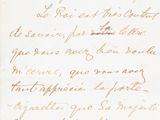 Le Roi est très content
de savoir, par la lettre
que vous avez bien voulu
m'écrire, que vous avez
tant apprécié la porte-
cigarettes que Sa Majesté